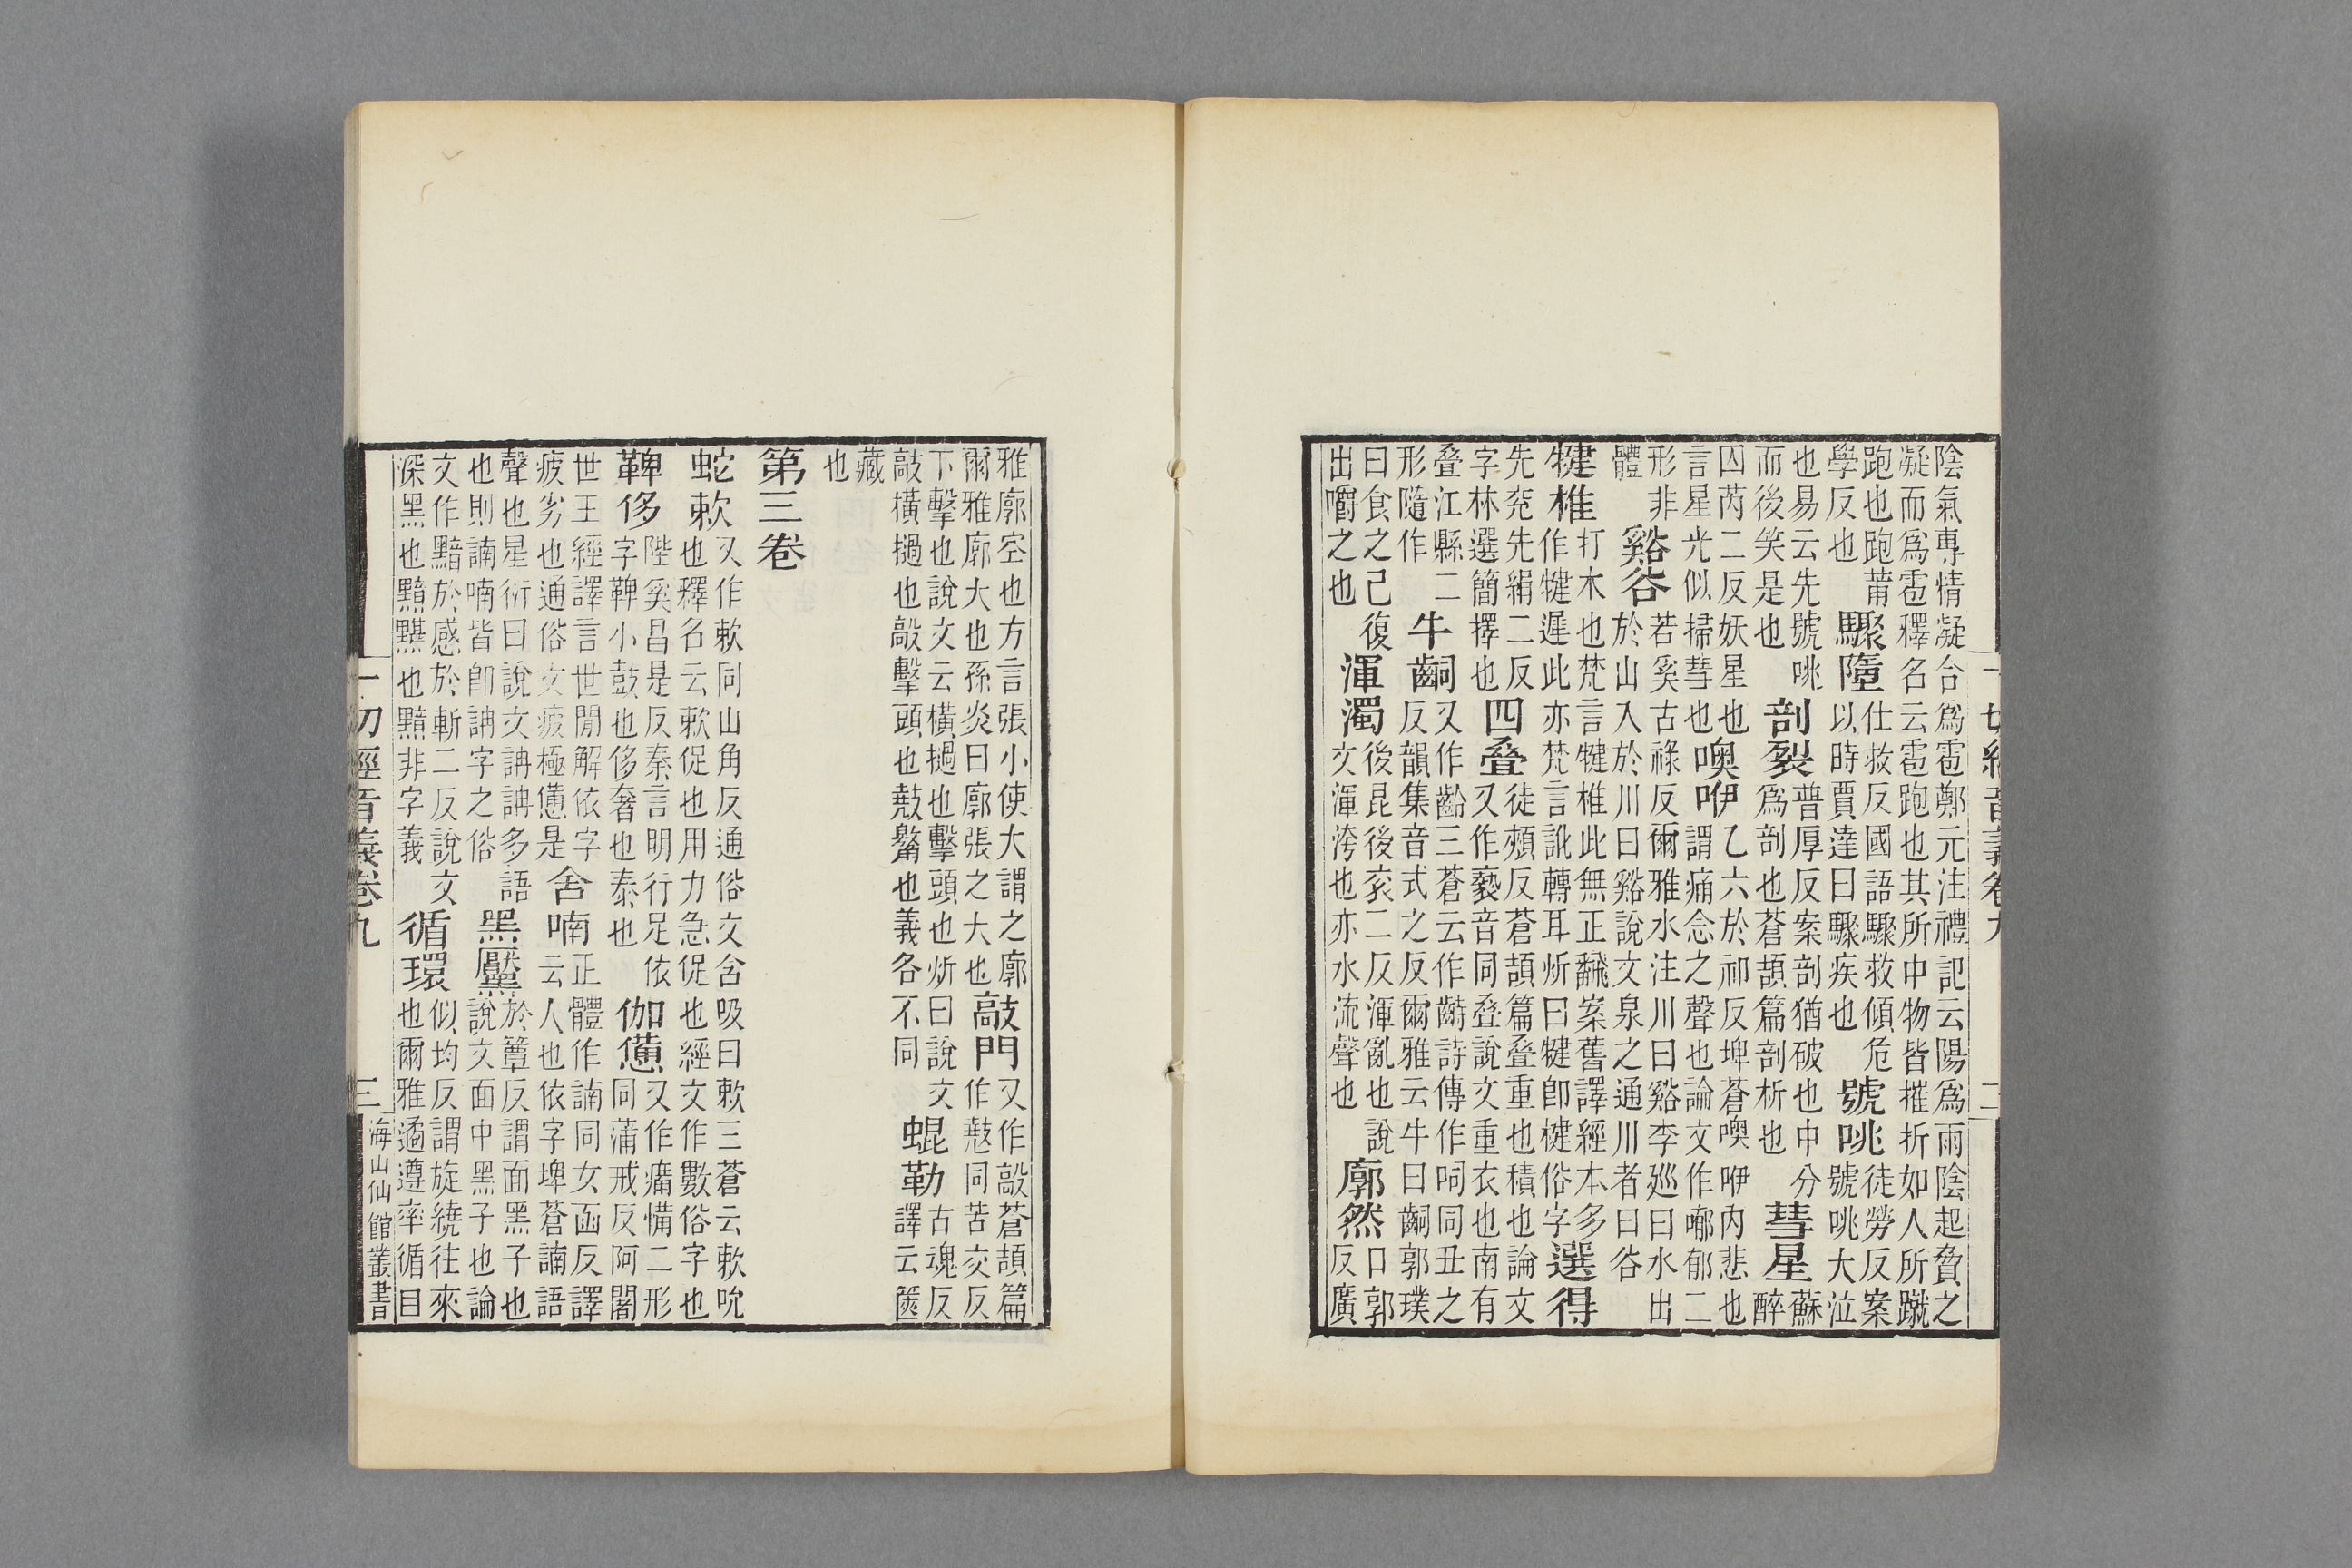 陰氣專情凝合爲雹鄭元注禮記云陽爲雨陰起貟之
凝而爲雹釋名云雹跑也其所中物皆摧折如人所蹴
跑也跑莆
學反也
驟墮
仕救反國語驟救傾危
以時賈達曰驟疾也
號咷
徒勞反案
號咷大泣
也易云先號咷
而後笑是也
剖裂
普厚反案剖猶破也中分
爲剖也蒼頡篇剖析也
彗星
蘇
醉
囚芮二反妖星也
言星光似掃彗也
噢咿
乙六於祁反埤蒼噢咿內悲也
謂痛念之聲也論文作㖿郁二
形非
體
谿谷
若奚古祿反爾雅水注川曰谿李廵曰水出
於山入於川曰谿說文泉之通川者曰谷
犍椎
打木也梵言犍椎此無正飜案舊譯經本多
作犍遲此亦梵言訛轉耳炘曰犍卽楗俗字
選得
先兖先絹二反
字林選簡擇也
四疊
徒頰反蒼頡篇疊重也積也論文
又作褺音同疊說文重衣也南有
疊江縣二
形隨作
牛齝
又作齡三蒼云作齝詩傳作呞同丑之
反韻集音式之反爾雅云牛曰齝郭璞
曰食之己復
出嚼之也
渾濁
後昆後衮二反渾亂也說
文渾洿也亦水流聲也
廓然
口郭
反廣
一切經音義卷九
二
雅廓空也方言張小使大謂之廓
爾雅廓大也孫炎曰廓張之大也
敲門
又作毃蒼頡篇
作㪣同苦交反
下擊也說文云橫撾也擊頭也炘曰說文
敲橫撾也毃擊頭也也義各不同
蜫勒
古魂反
譯云篋
藏
也
第三卷
蛇欶
又作欶同山角反通俗文含吸曰欶三蒼云欶吮
也釋名云欶促也用力急促也經文作數俗字也
鞞侈
陛奚昌是反秦言明行足依
字鞞小鼓也侈奢也泰也
伽憊
又作㾽備二形
同蒲戒反阿闍
世王經譯言世閒解依字
疲劣也通俗文疲極憊是
舍喃
正體作諵同女函反譯
云人也依字埤蒼諵語
聲也星衍曰說文訥訥多語
也則諵喃皆卽訥字之俗
黑黶
於簟反謂面黑子也
說文面中黑子也論
文作黯於感於斬二反說文
深黑也黯黮也黯非字義
循環
似均反謂旋繞往來
也爾雅遹遵率循目
一切經音義卷九
三
海山仙館叢書